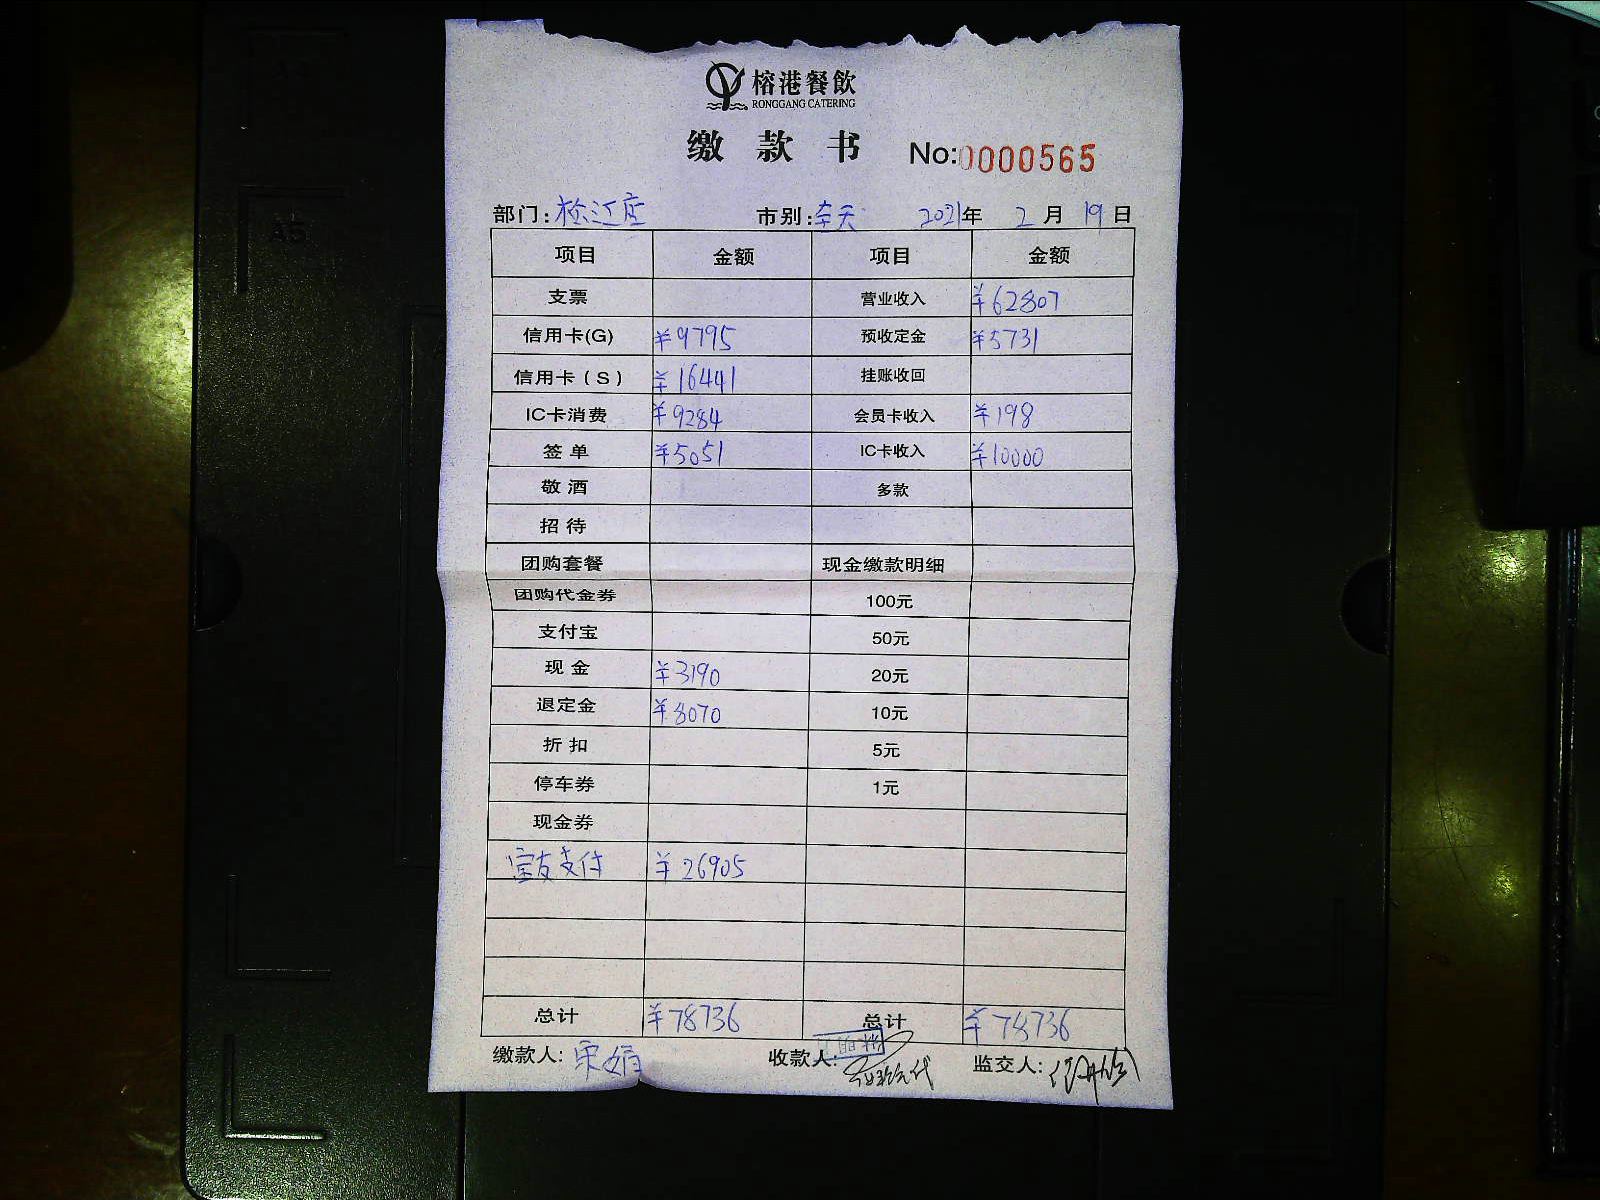 榕港餐飲
RONGGANG CATERING
缴款书 No:0000565
部门: 松江店 市别: 全天 2021年 2月 19日
项目 金额 项目 金额
支票 营业收入 ¥62807
信用卡(G) ¥9795 预收定金 ¥5731
信用卡(S) ¥16441 挂账收回
IC卡消费 ¥9284 会员卡收入 ¥198
签单 ¥5051 IC卡收入 ¥10000
敬酒 多款
招待
团购套餐 现金缴款明细
团购代金券 100元
支付宝 50元
现金 ¥3190 20元
退定金 ¥8070 10元
折扣 5元
停车券 1元
现金券
支付 ¥26905
总计 ¥78736 总计 ¥78736
缴款人: 宋娟 收款人: 监交人:
A5